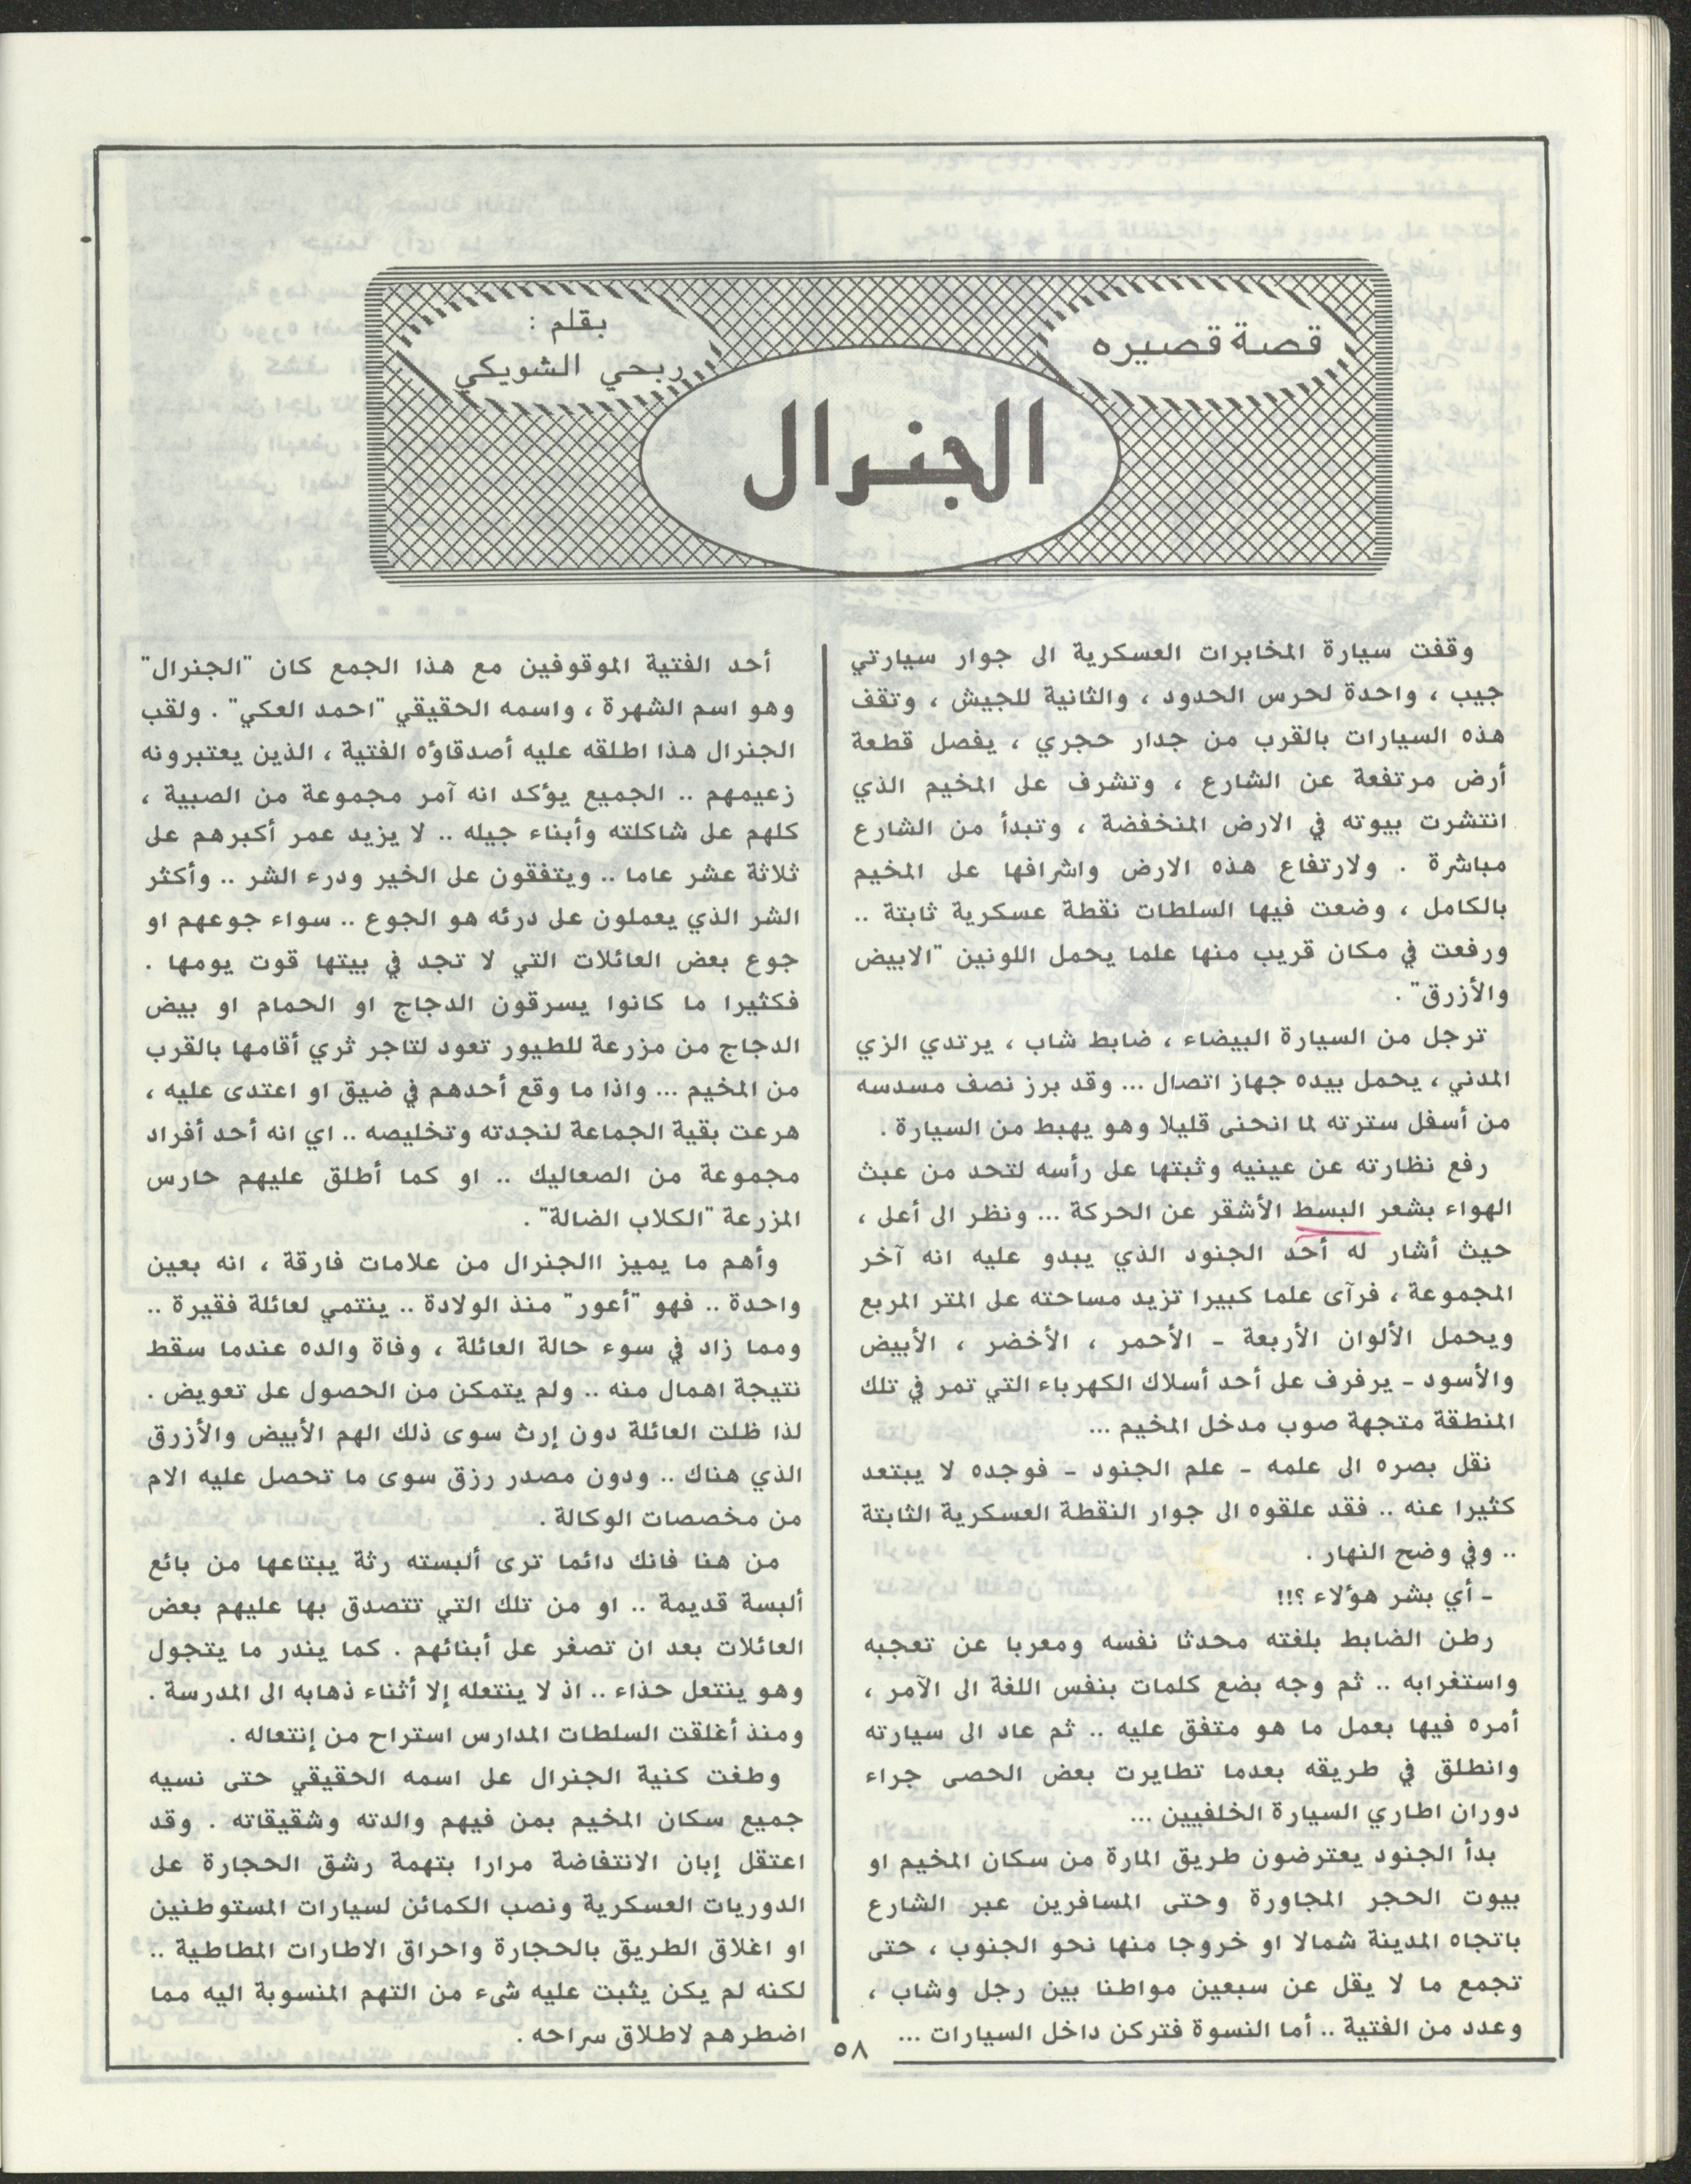 قصة قصيره
بقلم :
ربحي الشويكي
الجنرال
وقفت سيارة المخابرات العسكرية الى جوار سيارتي
جيب ، واحدة لحرس الحدود ، والثانية للجيش ، وتقف
هذه السيارات بالقرب من جدار حجري ، يفصل قطعة
أرض مرتفعة عن الشارع ، وتشرف على المخيم الذي
انتشرت بيوته في الارض المنخفضة ، وتبدأ من الشارع
مباشرة . ولارتفاع هذه الارض واشرافها على المخيم
بالكامل ، وضعت فيها السلطات نقطة عسكرية ثابتة ..
ورفعت في مكان قريب منها علما يحمل اللونين "الابيض
والأزرق" .
ترجل من السيارة البيضاء ، ضابط شاب ، يرتدي الزي
المدني ، يحمل بيده جهاز اتصال ... وقد برز نصف مسدسه
من أسفل سترته لما انحنى قليلا وهو يهبط من السيارة .
رفع نظارته عن عينيه وثبتها على رأسه لتحد من عبث
الهواء بشعر البسط الأشقر عن الحركة ... ونظر الى أعلى ،
حيث أشار له أحد الجنود الذي يبدو عليه انه آخر
المجموعة ، فرآى علما كبيرا تزيد مساحته على المتر المربع
ويحمل الألوان الأربعة - الأحمر ، الأخضر ، الأبيض
والأسود - يرفرف على أحد أسلاك الكهرباء التي تمر في تلك
المنطقة متجهة صوب مدخل المخيم ...
نقل بصره الى علمه - علم الجنود - فوجده لا يبتعد
كثيرا عنه .. فقد علقوه الى جوار النقطة العسكرية الثابتة
.. وفي وضح النهار .
- أي بشر هؤلاء ؟!!
رطن الضابط بلغته محدثا نفسه ومعربا عن تعجبه
واستغرابه .. ثم وجه بضع كلمات بنفس اللغة الى الآمر ،
أمره فيها بعمل ما هو متفق عليه .. ثم عاد الى سيارته
وانطلق في طريقه بعدما تطايرت بعض الحصى جراء
دوران اطاري السيارة الخلفيين ...
بدأ الجنود يعترضون طريق المارة من سكان المخيم او
بيوت الحجر المجاورة وحتى المسافرين عبر الشارع
باتجاه المدينة شمالا او خروجا منها نحو الجنوب ، حتى
تجمع ما لا يقل عن سبعين مواطنا بين رجل وشاب ،
وعدد من الفتية .. أما النسوة فتركن داخل السيارات ...
أحد الفتية الموقوفين مع هذا الجمع كان "الجنرال"
وهو اسم الشهرة ، واسمه الحقيقي "احمد العكي" . ولقب
الجنرال هذا اطلقه عليه أصدقاؤه الفتية ، الذين يعتبرونه
زعيمهم .. الجميع يؤكد انه آمر مجموعة من الصبية ،
كلهم على شاكلته وأبناء جيله .. لا يزيد عمر أكبرهم على
ثلاثة عشر عاما .. ويتفقون على الخير ودرء الشر .. وأكثر
الشر الذي يعملون على درئه هو الجوع .. سواء جوعهم او
جوع بعض العائلات التي لا تجد في بيتها قوت يومها .
فكثيرا ما كانوا يسرقون الدجاج او الحمام او بيض
الدجاج من مزرعة للطيور تعود لتاجر ثري أقامها بالقرب
من المخيم ... واذا ما وقع أحدهم في ضيق او اعتدى عليه ،
هرعت بقية الجماعة لنجدته وتخليصه .. اي انه أحد أفراد
مجموعة من الصعاليك .. او كما أطلق عليهم حارس
المزرعة "الكلاب الضالة" .
وأهم ما يميز االجنرال من علامات فارقة ، انه بعين
واحدة .. فهو "أعور" منذ الولادة .. ينتمي لعائلة فقيرة ..
ومما زاد في سوء حالة العائلة ، وفاة والده عندما سقط
نتيجة اهمال منه .. ولم يتمكن من الحصول على تعويض .
لذا ظلت العائلة دون إرث سوى ذلك الهم الأبيض والأزرق
الذي هناك .. ودون مصدر رزق سوى ما تحصل عليه الام
من مخصصات الوكالة .
من هنا فانك دائما ترى ألبسته رثة يبتاعها من بائع
ألبسة قديمة .. او من تلك التي تتصدق بها عليهم بعض
العائلات بعد ان تصغر على أبنائهم . كما يندر ما يتجول
وهو ينتعل حذاء .. اذ لا ينتعله إلا أثناء ذهابه الى المدرسة .
ومنذ أغلقت السلطات المدارس استراح من إنتعاله .
وطغت كنية الجنرال على اسمه الحقيقي حتى نسيه
جميع سكان المخيم بمن فيهم والدته وشقيقاته . وقد
اعتقل إبان الانتفاضة مرارا بتهمة رشق الحجارة على
الدوريات العسكرية ونصب الكمائن لسيارات المستوطنين
او اغلاق الطريق بالحجارة واحراق الاطارات المطاطية ..
لكنه لم يكن يثبت عليه شيء من التهم المنسوبة اليه مما
اضطرهم لاطلاق سراحه .
٥٨